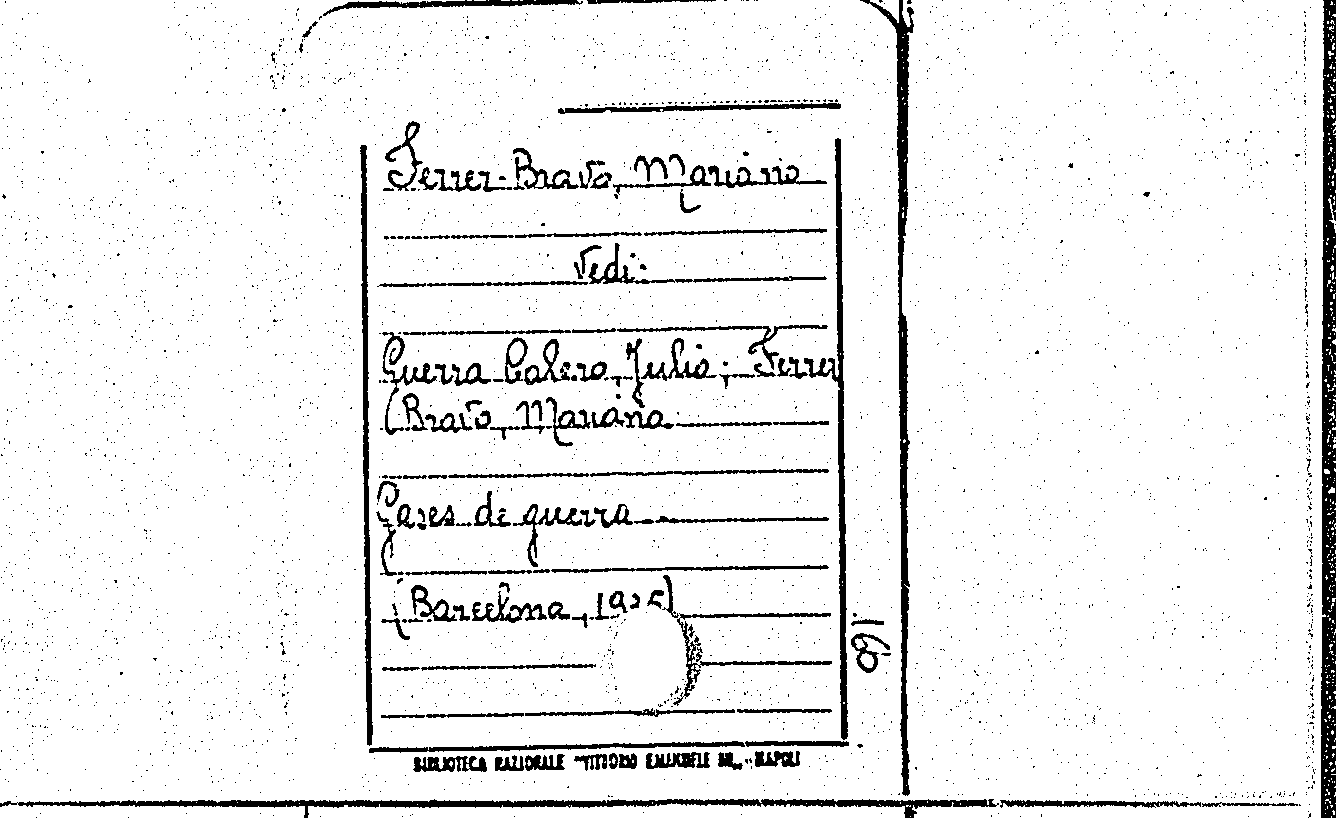 Ferrer-Bravo, Mariano
Vedi:
Guerra Calero, Julio; Ferrer
(Bravo, Mariano
Gases de guerra
(Barcelona, 1925)
160
BIBLIOTECA NAZIONALE "VITTORIO EMANUELE III„ - NAPOLI